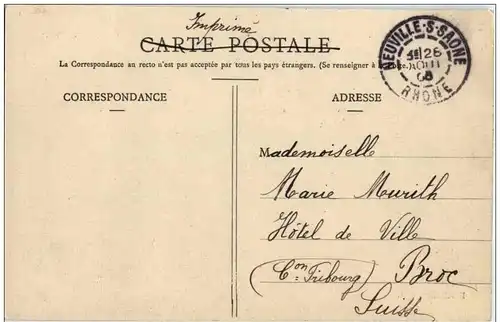 Imprimé
CARTE POSTALE
La Correspondance au recto n'est pas acceptée par tous les pays étrangers. (Se renseigner à la Poste.)
NEUVILLE-S-SAONE
26
AOUT
08
RHONE
CORRESPONDANCE
ADRESSE
Mademoiselle
Marie Murith
Hôtel de Ville
(Con Fribourg) Broc
Suisse